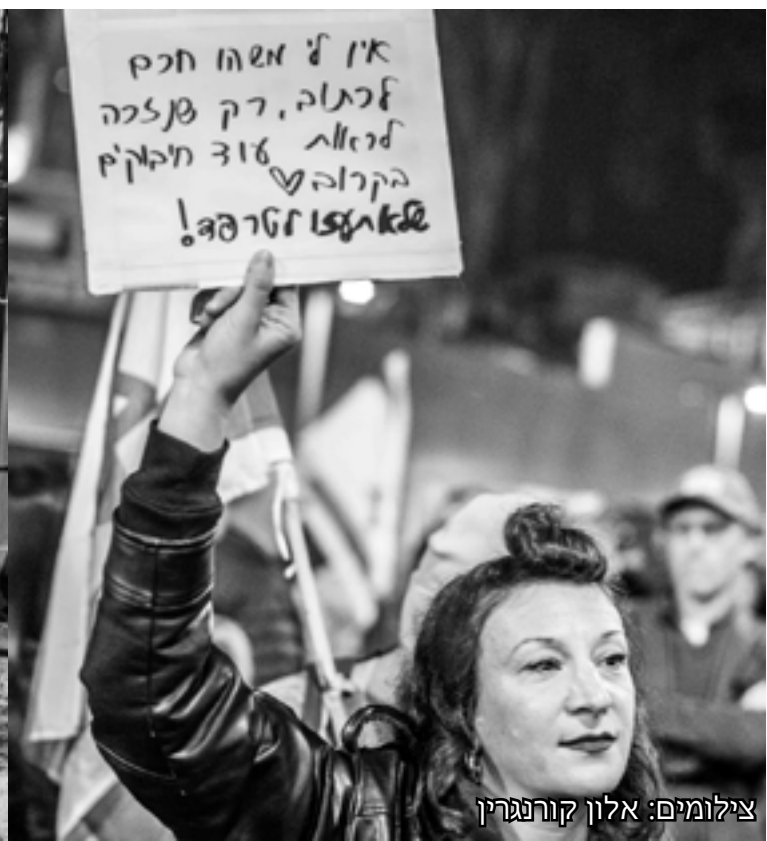 אין לי משהו חכם
לכתוב, רק שנזכה
לראות עוד חיבוקים
בקרוב♡
שלא תעזו לטרפד!
צילומים: אלון קורנגרין